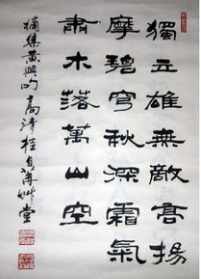 獨立雄無敵高揚
摩碧穹秋深霜氣
肅木落萬山空
摘集黃興句